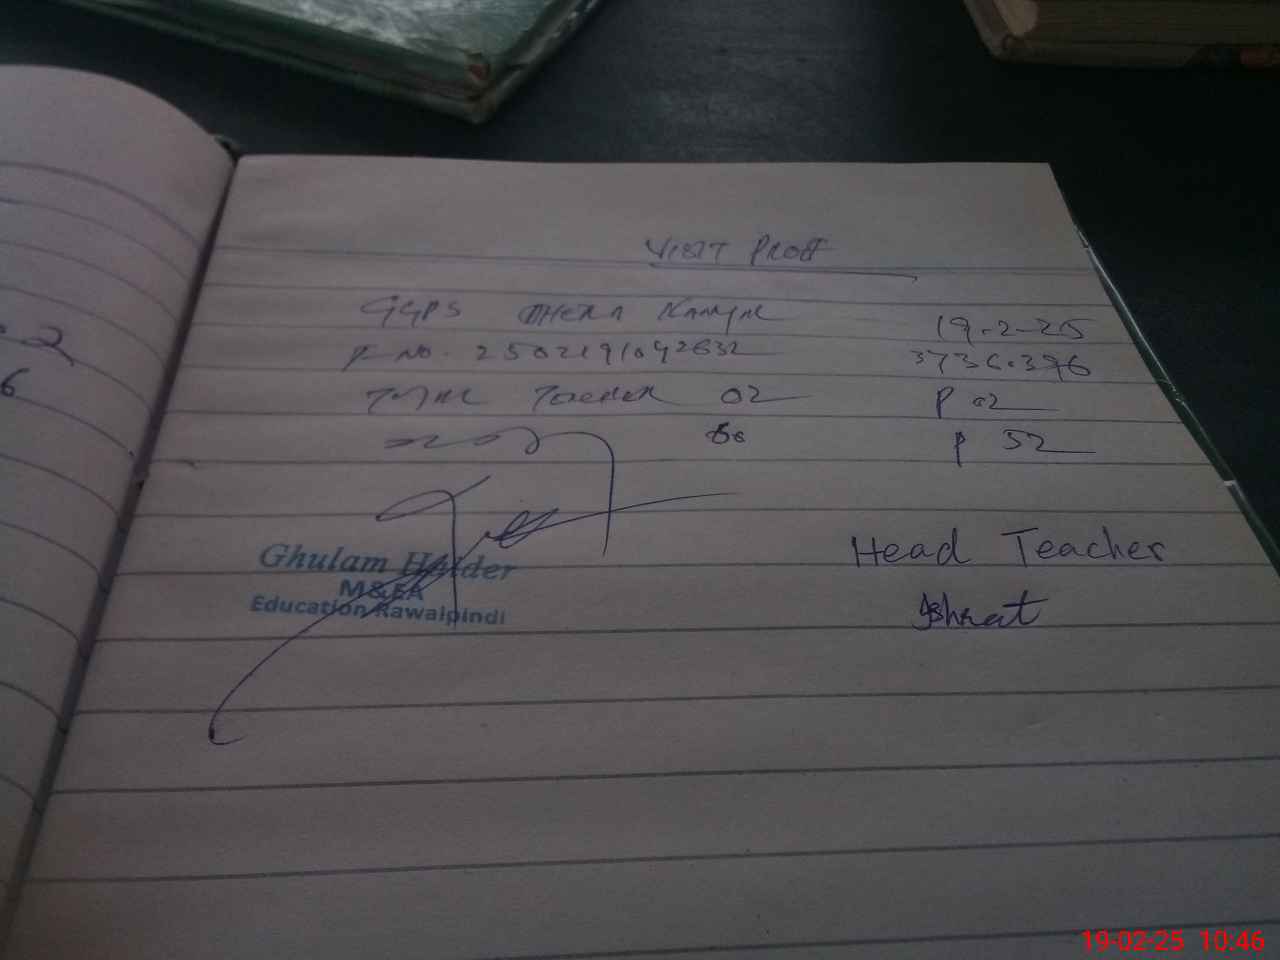 2
6
VISIT PROOF
GGPS DHERA 19-2-25
F No. 2502191042632 3736.376
Total Teacher 02 P 02
P 52
Head Teacher
Ishrat
Ghulam Haider
M&EA
Education Rawalpindi
19-02-25 10:46